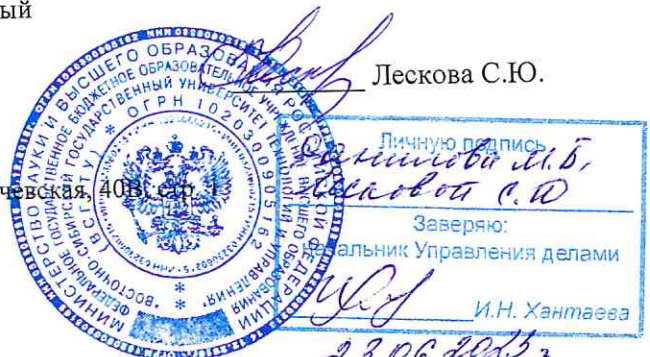 ый
Лескова С.Ю.
чевская, 40В, стр. 1
МИНИСТЕРСТВО НАУКИ И ВЫСШЕГО ОБРАЗОВАНИЯ РОССИЙСКОЙ ФЕДЕРАЦИИ
ФЕДЕРАЛЬНОЕ ГОСУДАРСТВЕННОЕ БЮДЖЕТНОЕ ОБРАЗОВАТЕЛЬНОЕ УЧРЕЖДЕНИЕ ВЫСШЕГО ОБРАЗОВАНИЯ
"ВОСТОЧНО-СИБИРСКИЙ ГОСУДАРСТВЕННЫЙ УНИВЕРСИТЕТ ТЕХНОЛОГИЙ И УПРАВЛЕНИЯ"
(ВСГУТУ) * ОГРН 1020300905
Личную подпись
Данилова М.Б,
Лесковой С.Ю
Заверяю:
начальник Управления делами
И.Н. Хантаева
23.06.2023 г